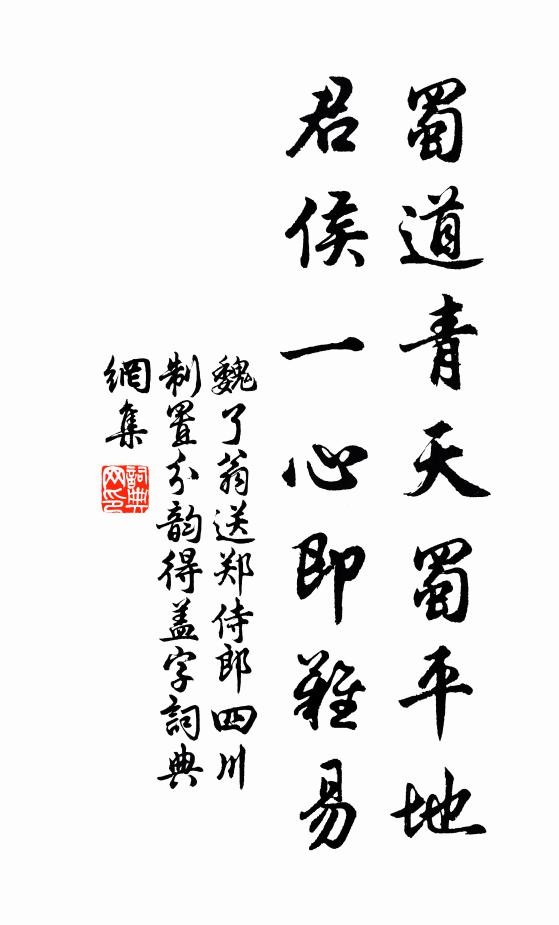 蜀道青天蜀平地
君侯一心即難易
魏了翁送郑侍郎四川
制置分韵得盖字詞典
網集
詞典
网印